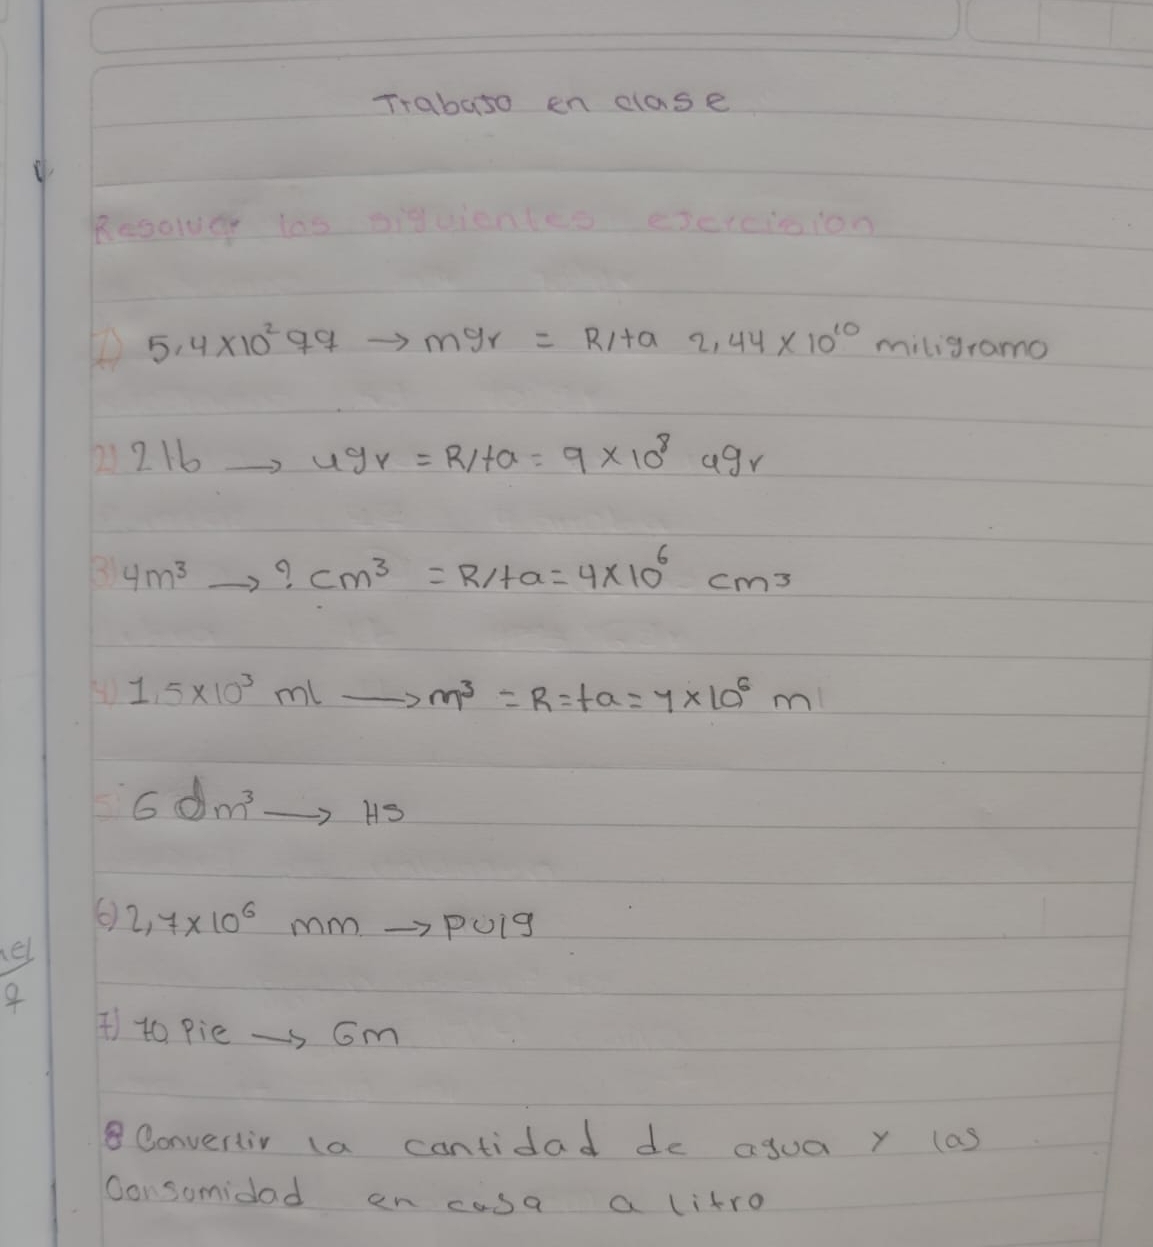 Trabajo en clase
Resolver los siguientes ejercicion
1) 5,4x10² qq → mgr = R/ta 2,44 x 10¹⁰ miligramo
2) 2 lb → ugr = R/ta = 9 x 10⁸ ugr
3) 4m³ → ? cm³ = R/ta = 4x10⁶ cm3
4) 1,5x10³ ml → m³ = R=ta = 4x10⁶ ml
5) 6 dm³ → HS
6) 2,7x10⁶ mm → pulg
7) 70 Pie → Gm
8 Convertir la cantidad de agua y las
Consumidad en casa a litro